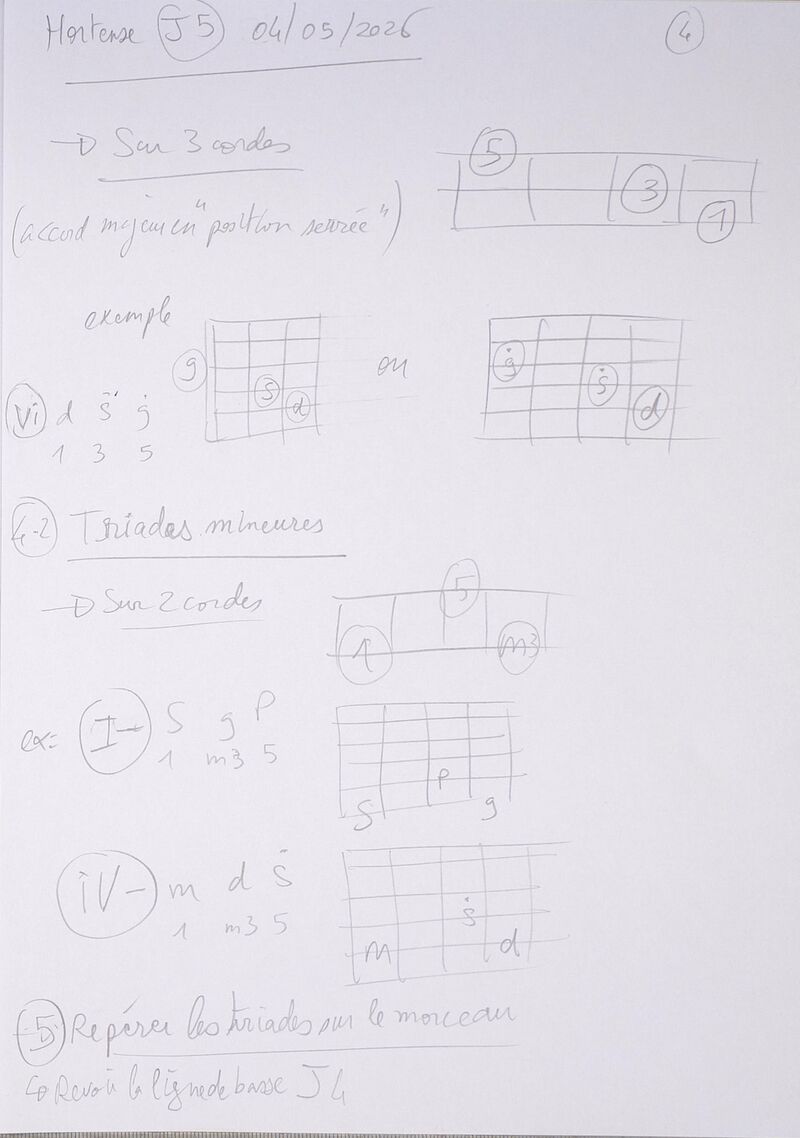 Hortense J5 04/05/2026
4
→ Sur 3 cordes
5
3
1
(accord majeur en "position serrée")
exemple
g
s
d
ou
ġ
ṡ
d
VI d ṡ ġ
1 3 5
4-2 Triades mineures
→ Sur 2 cordes
5
1
m3
ex: I- S g P
1 m3 5
P
S g
IV- m d ṡ
1 m3 5
ṡ
m d
5 Repérer les triades sur le morceau
↪ Revoir la ligne de basse J4